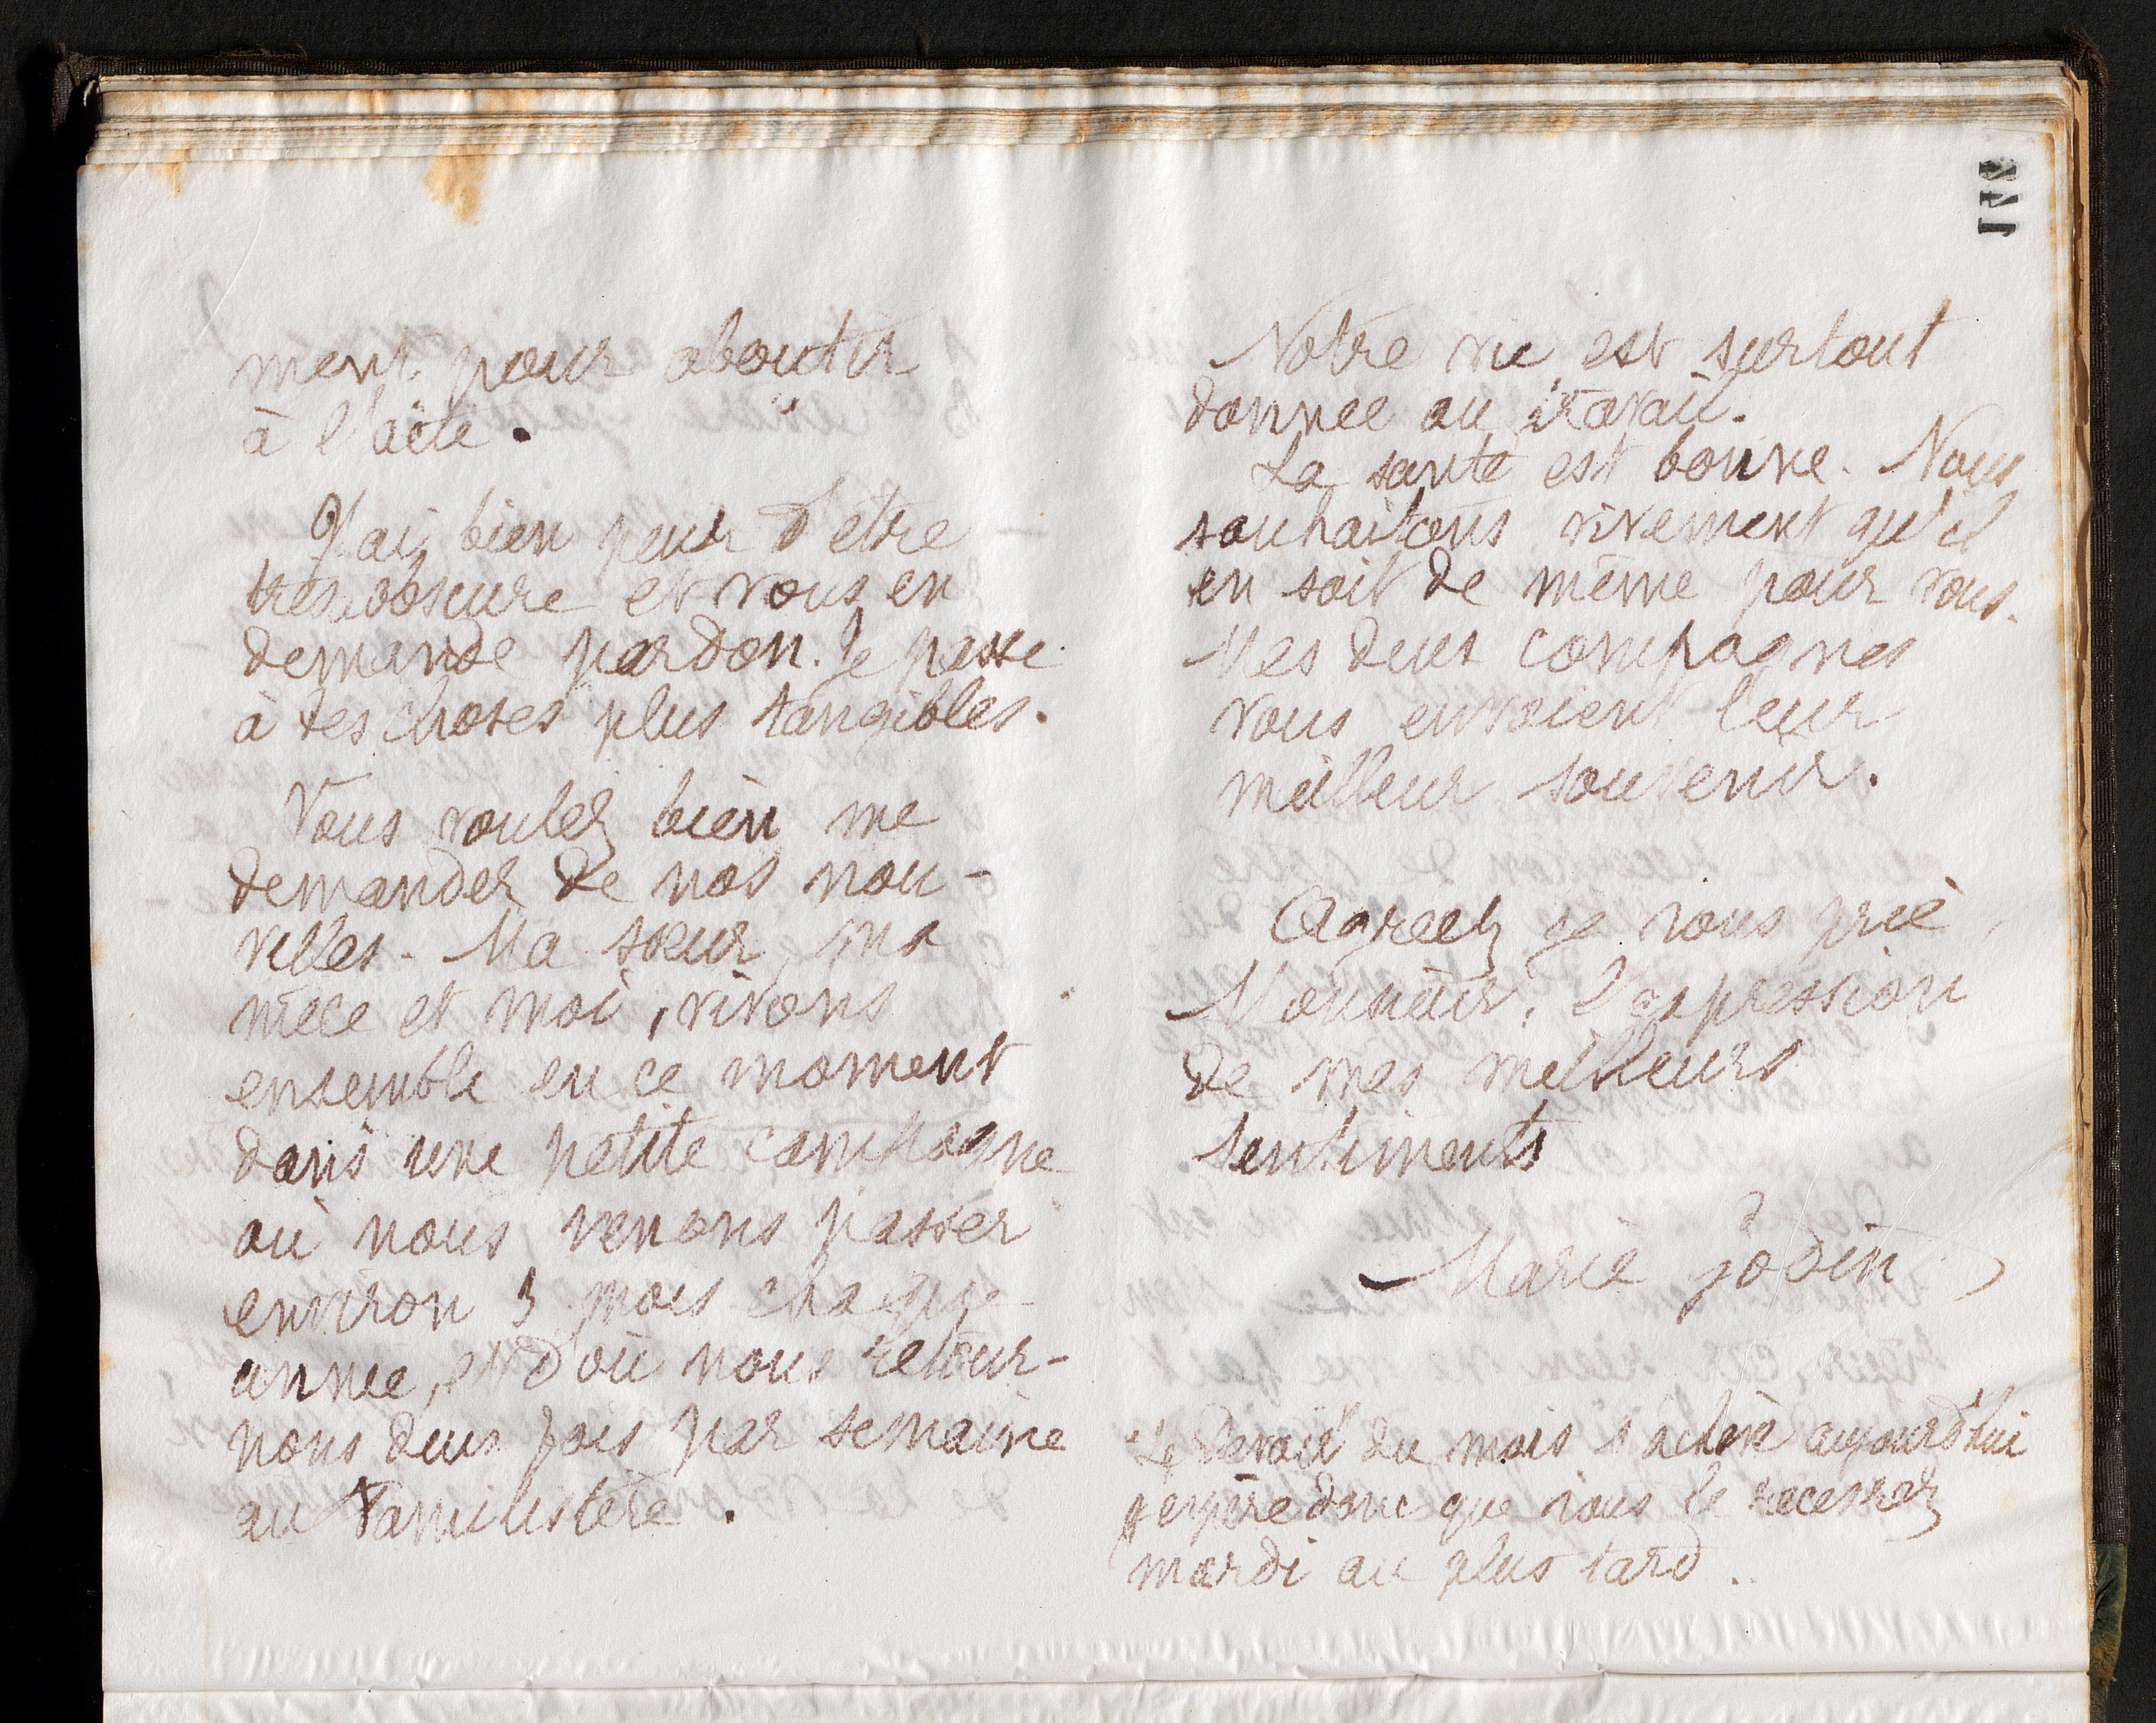 ment pour aboutir
à l'acte.
J'ai bien peur d'être
très obscure et vous en
demande pardon. Je passe
à des choses plus tangibles.
Vous voulez bien me
demander de nos nou-
velles. Ma sœur, ma
nièce et moi, vivons
ensemble en ce moment
dans une petite campagne
où nous venons passer
environ 3 mois chaque
année, et d'où nous retour-
nons deux fois par semaine
au Familistère.
Notre vie est surtout
donnée au travail.
La santé est bonne. Nous
souhaitons vivement qu'il
en soit de même pour vous.
Mes deux compagnes
vous envoient leur
meilleur souvenir.
Agréez je vous prie,
Monsieur, l'expression
de mes meilleurs
sentiments
Marie
Le Devoir du mois s'achève aujourd'hui
j'espère donc que vous le recevrez
mardi au plus tard.